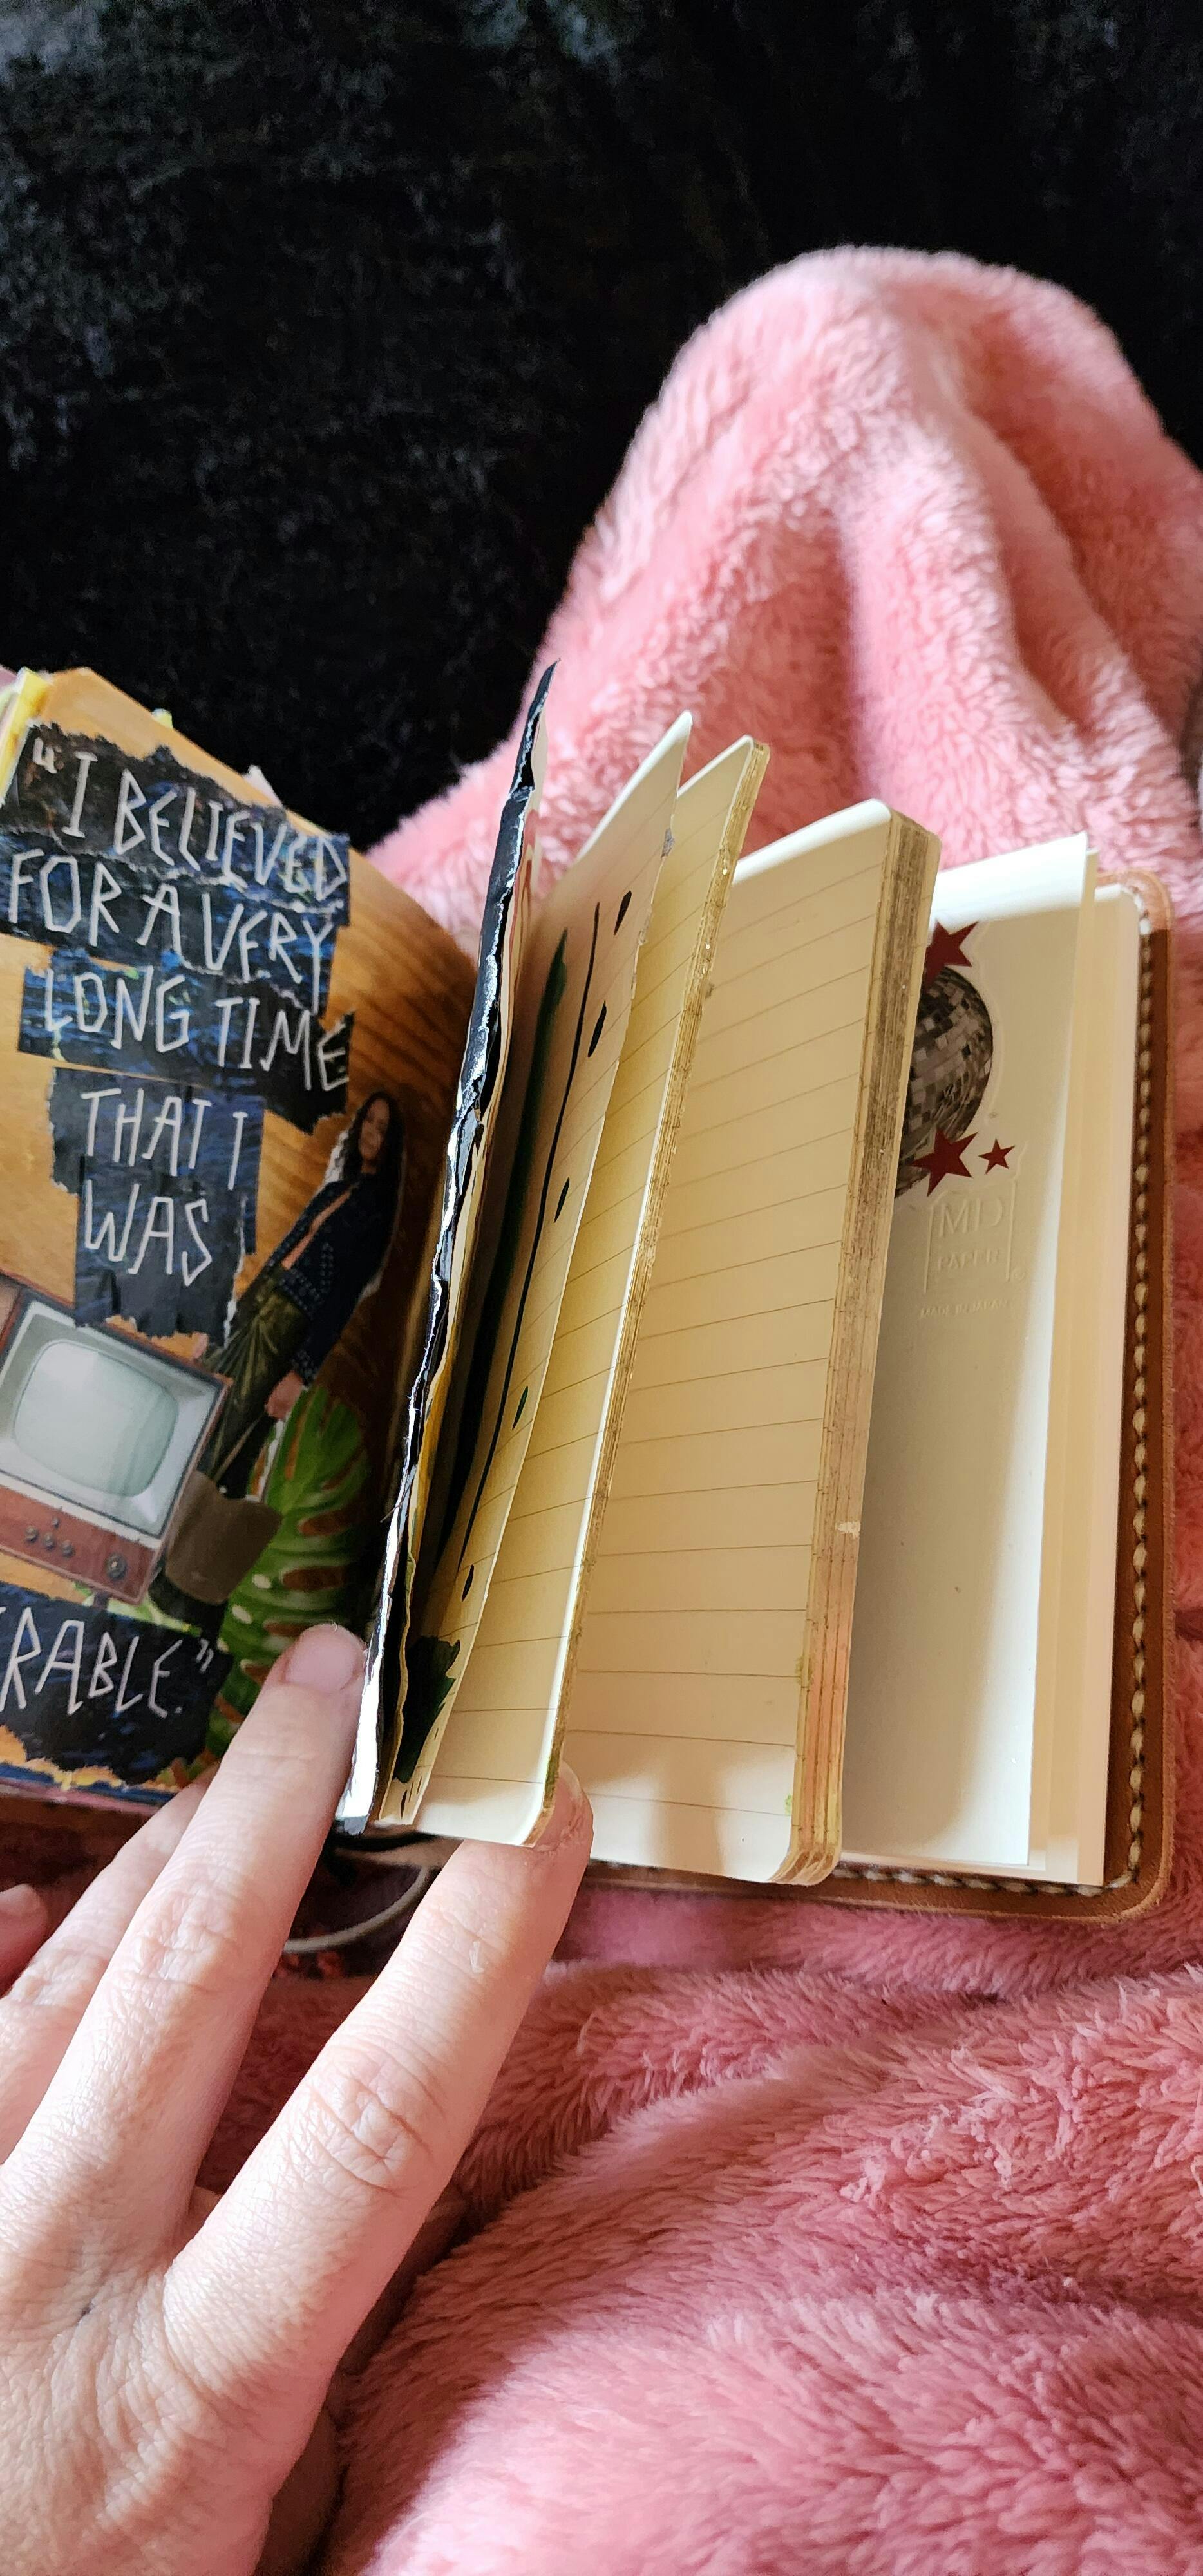 "I BELIEVED
FOR A VERY
LONG TIME
THAT I
WAS
RABLE."
MD
PAPER
MADE IN JAPAN